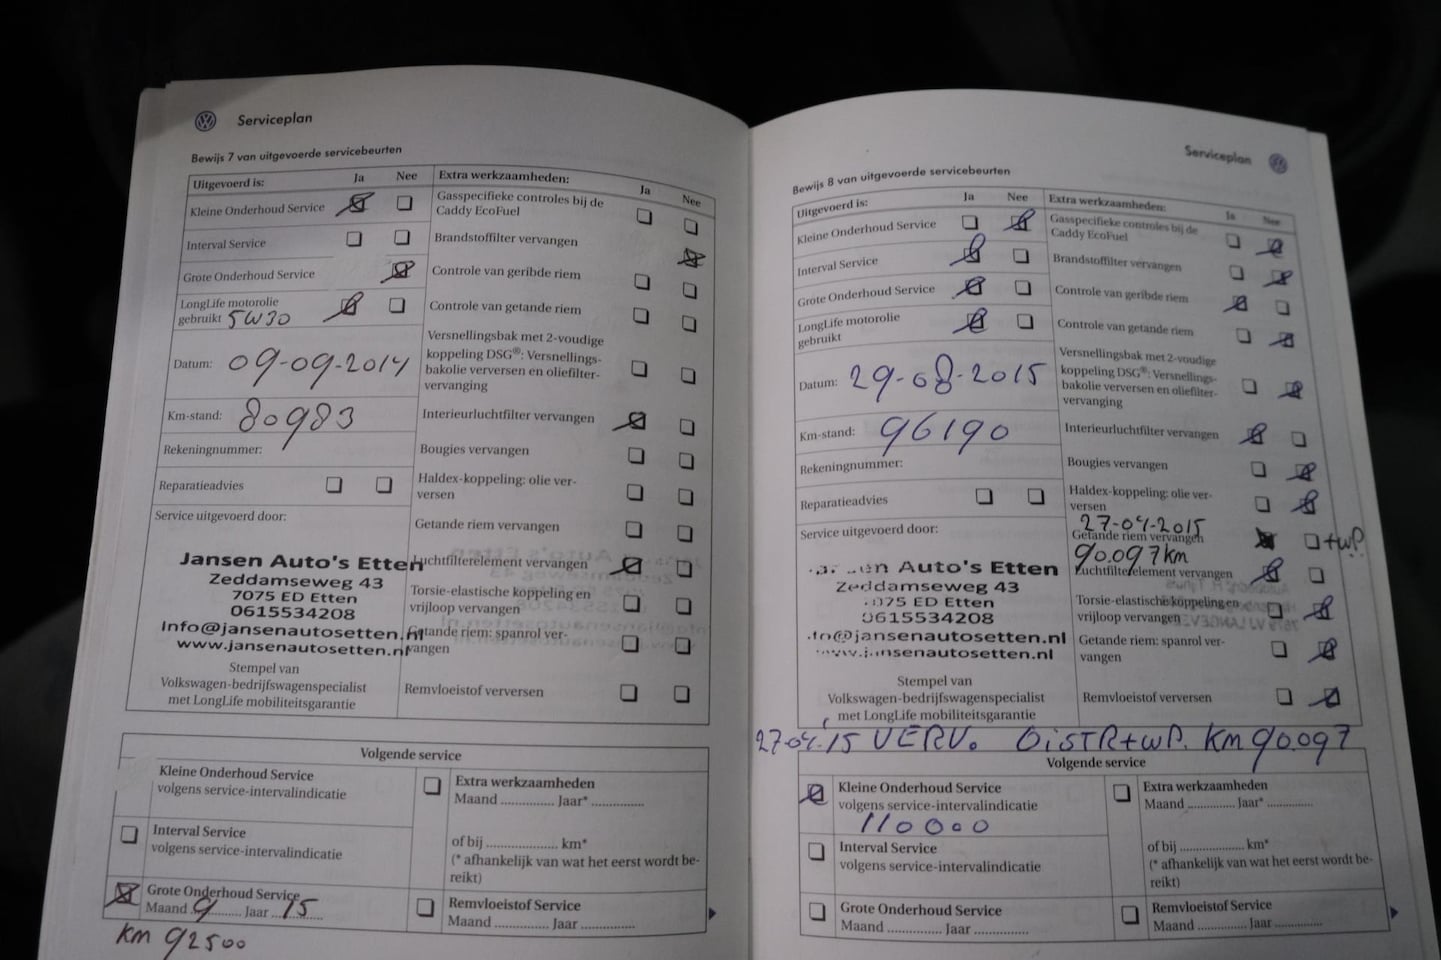 Serviceplan
Bewijs 7 van uitgevoerde servicebeurten
Uitgevoerd is: Ja Nee
Kleine Onderhoud Service
Interval Service
Grote Onderhoud Service
LongLife motorolie
gebruikt 5W30
Datum: 09-09-2014
Km-stand: 80983
Rekeningnummer:
Reparatieadvies
Service uitgevoerd door:
Jansen Auto's Etten
Zeddamseweg 43
7075 ED Etten
0615534208
Info@jansenautosetten.nl
www.jansenautosetten.nl
Stempel van
Volkswagen-bedrijfswagenspecialist
met LongLife mobiliteitsgarantie
Extra werkzaamheden: Ja Nee
Gasspecifieke controles bij de
Caddy EcoFuel
Brandstoffilter vervangen
Controle van geribde riem
Controle van getande riem
Versnellingsbak met 2-voudige
koppeling DSG®: Versnellings-
bakolie verversen en oliefilter-
vervanging
Interieurluchtfilter vervangen
Bougies vervangen
Haldex-koppeling: olie ver-
versen
Getande riem vervangen
Luchtfilterelement vervangen
Torsie-elastische koppeling en
vrijloop vervangen
Getande riem: spanrol ver-
vangen
Remvloeistof verversen
Volgende service
Kleine Onderhoud Service
volgens service-intervalindicatie
Interval Service
volgens service-intervalindicatie
Grote Onderhoud Service
Maand 9 Jaar 15
km 92500
Extra werkzaamheden
Maand .............. Jaar* ..............
of bij ................... km*
(* afhankelijk van wat het eerst wordt be-
reikt)
Remvloeistof Service
Maand .............. Jaar ..............
Serviceplan
Bewijs 8 van uitgevoerde servicebeurten
Uitgevoerd is: Ja Nee
Kleine Onderhoud Service
Interval Service
Grote Onderhoud Service
LongLife motorolie
gebruikt
Datum: 29-08-2015
Km-stand: 96190
Rekeningnummer:
Reparatieadvies
Service uitgevoerd door:
Jansen Auto's Etten
Zeddamseweg 43
7075 ED Etten
0615534208
Info@jansenautosetten.nl
www.jansenautosetten.nl
Stempel van
Volkswagen-bedrijfswagenspecialist
met LongLife mobiliteitsgarantie
Extra werkzaamheden: Ja Nee
Gasspecifieke controles bij de
Caddy EcoFuel
Brandstoffilter vervangen
Controle van geribde riem
Controle van getande riem
Versnellingsbak met 2-voudige
koppeling DSG®: Versnellings-
bakolie verversen en oliefilter-
vervanging
Interieurluchtfilter vervangen
Bougies vervangen
Haldex-koppeling: olie ver-
versen
27-04-2015
Getande riem vervangen +WP.
90.097km
Luchtfilterelement vervangen
Torsie-elastische koppeling en
vrijloop vervangen
Getande riem: spanrol ver-
vangen
Remvloeistof verversen
27-04-15 VERV. DISTR+WP. Km 90.097
Volgende service
Kleine Onderhoud Service
volgens service-intervalindicatie
110000
Interval Service
volgens service-intervalindicatie
Grote Onderhoud Service
Maand .............. Jaar ..............
Extra werkzaamheden
Maand .............. Jaar* ..............
of bij ................... km*
(* afhankelijk van wat het eerst wordt be-
reikt)
Remvloeistof Service
Maand .............. Jaar ..............